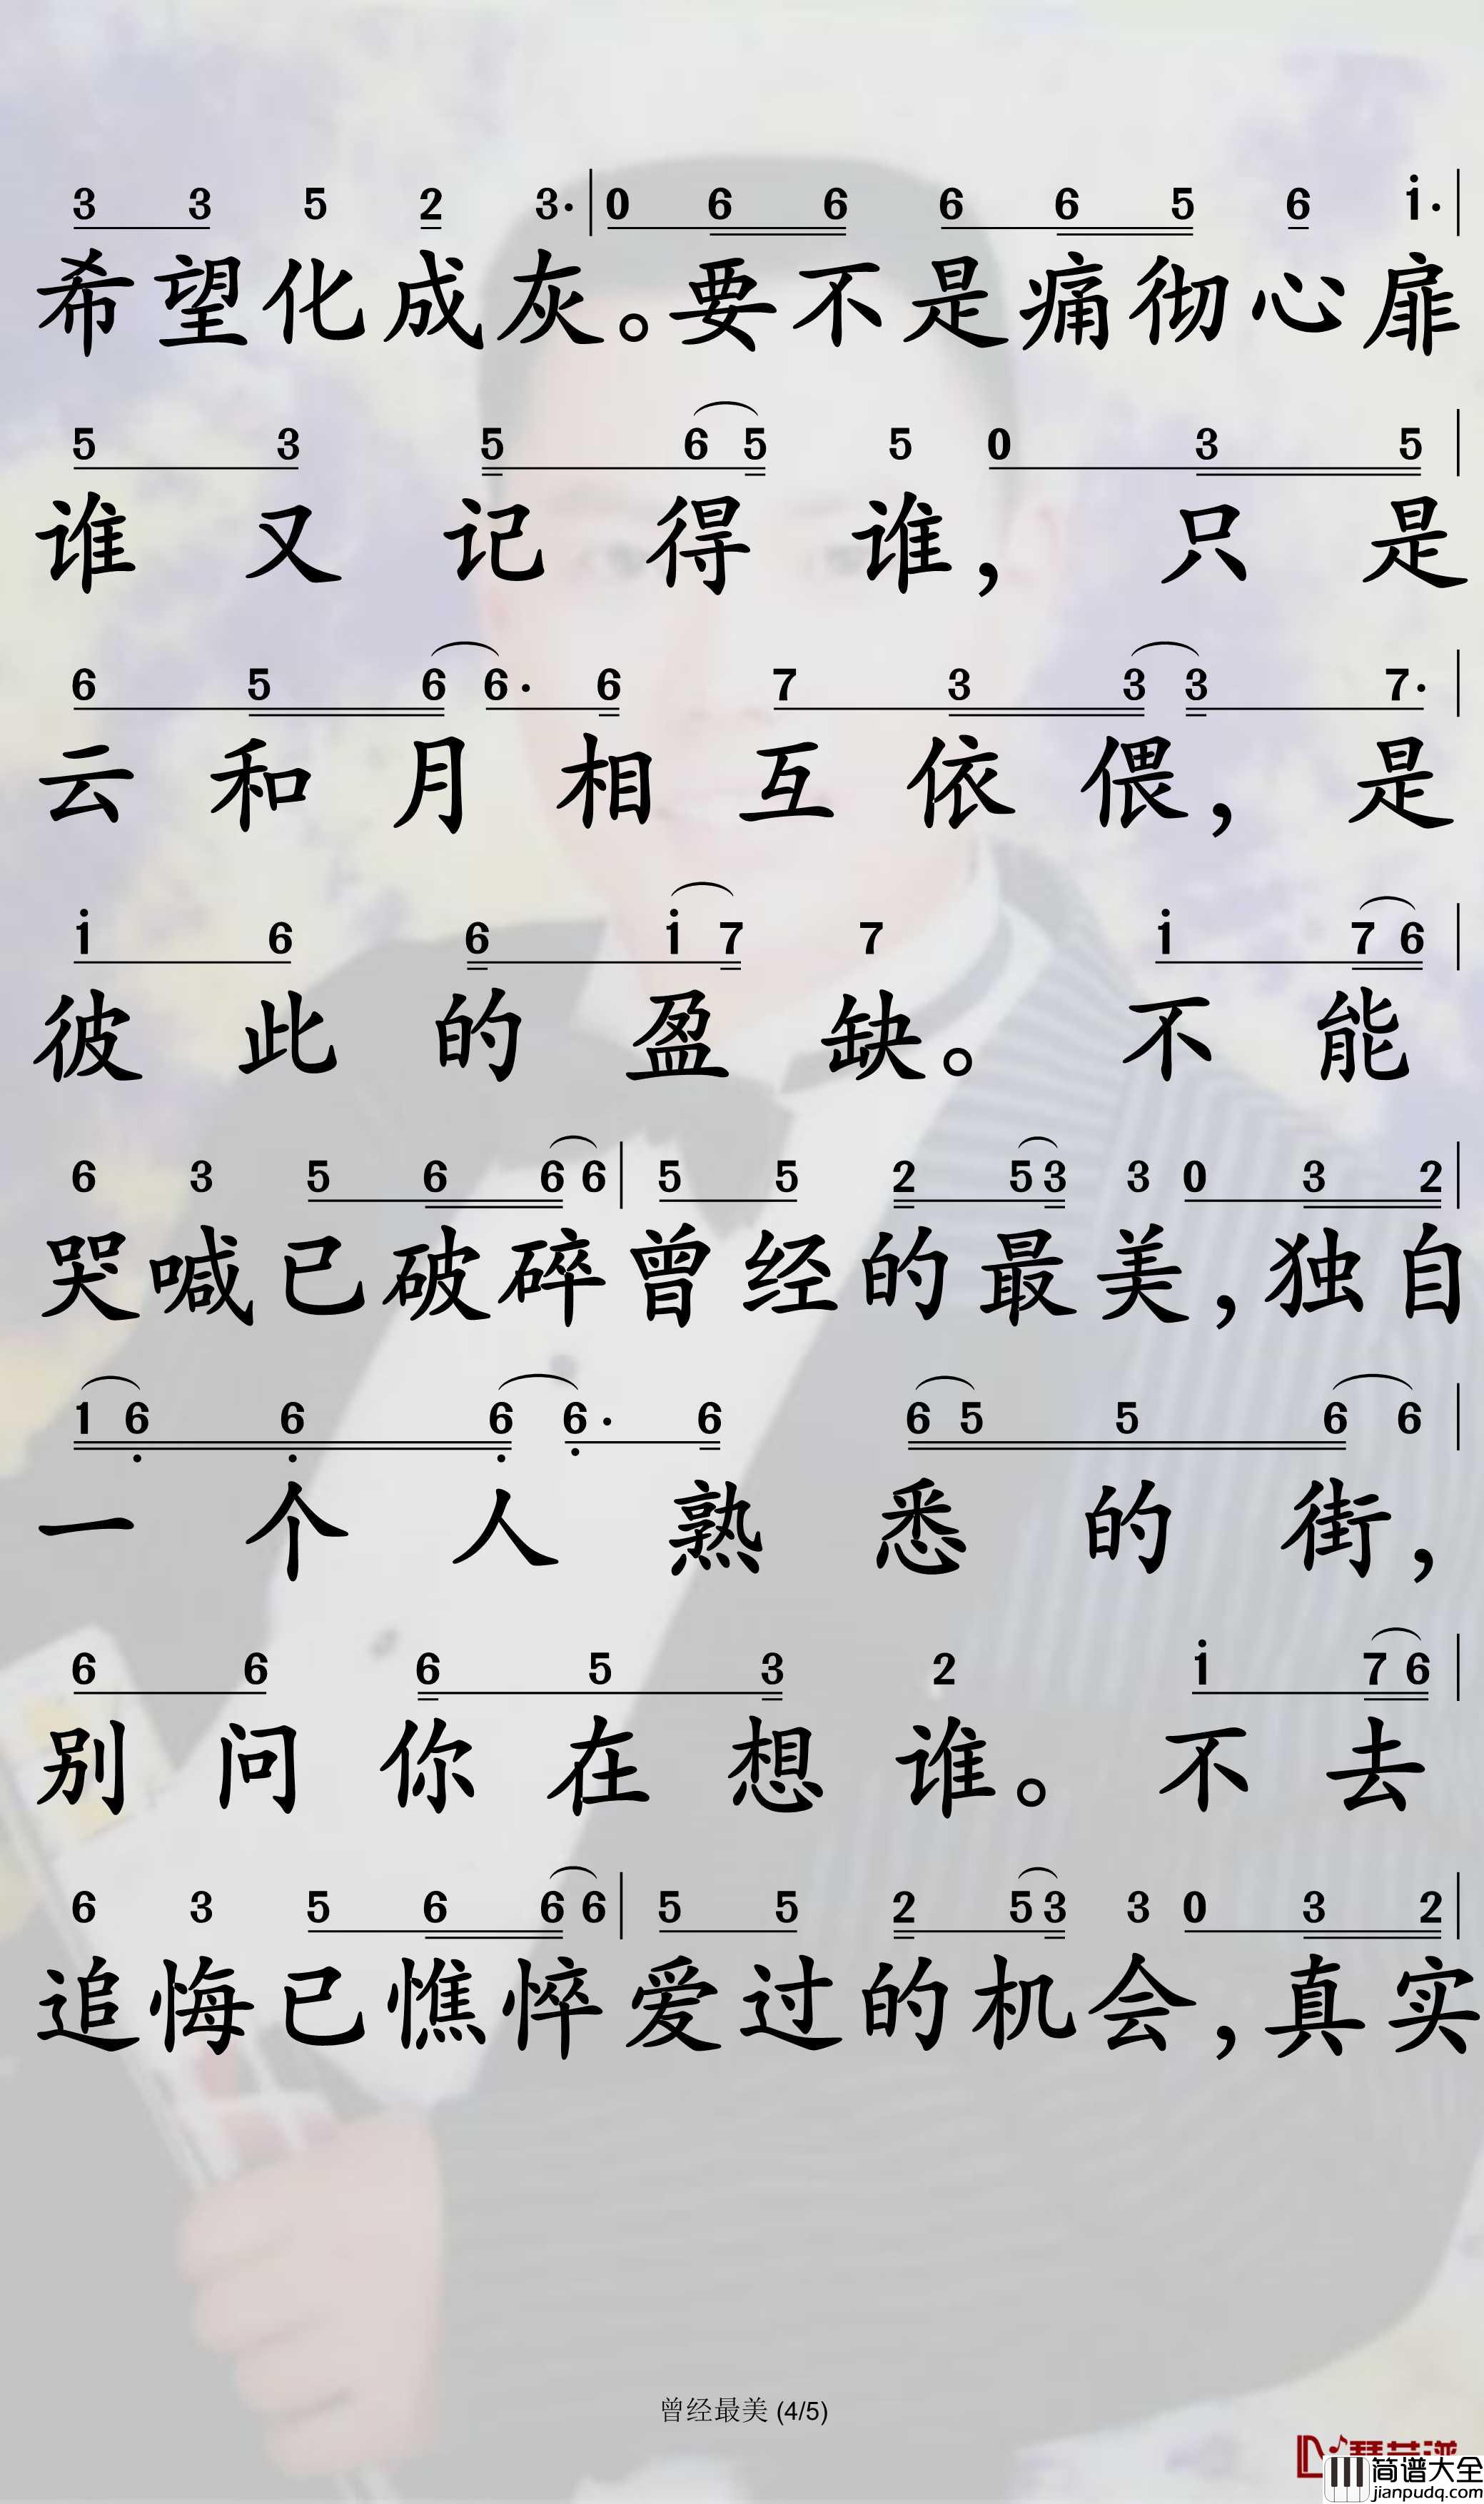 3 3 5 2 3· | 0 6 6 6 6 5 6 i· |
希望化成灰。要不是痛彻心扉
5 3 5 6 5 5 0 3 5 |
谁又记得谁，只是
6 5 6 6· 6 7 3 3 3 7· |
云和月相互依偎，是
i 6 6 i 7 7 i 7 6 |
彼此的盈缺。不能
6 3 5 6 6 6 | 5 5 2 5 3 3 0 3 2 |
哭喊已破碎曾经的最美，独自
1 6 6 6 6· 6 6 5 5 6 6 |
一个人熟悉的街，
6 6 6 5 3 2 i 7 6 |
别问你在想谁。不去
6 3 5 6 6 6 | 5 5 2 5 3 3 0 3 2 |
追悔已憔悴爱过的机会，真实
曾经最美 (4/5)
简谱大全
jianpudq.com